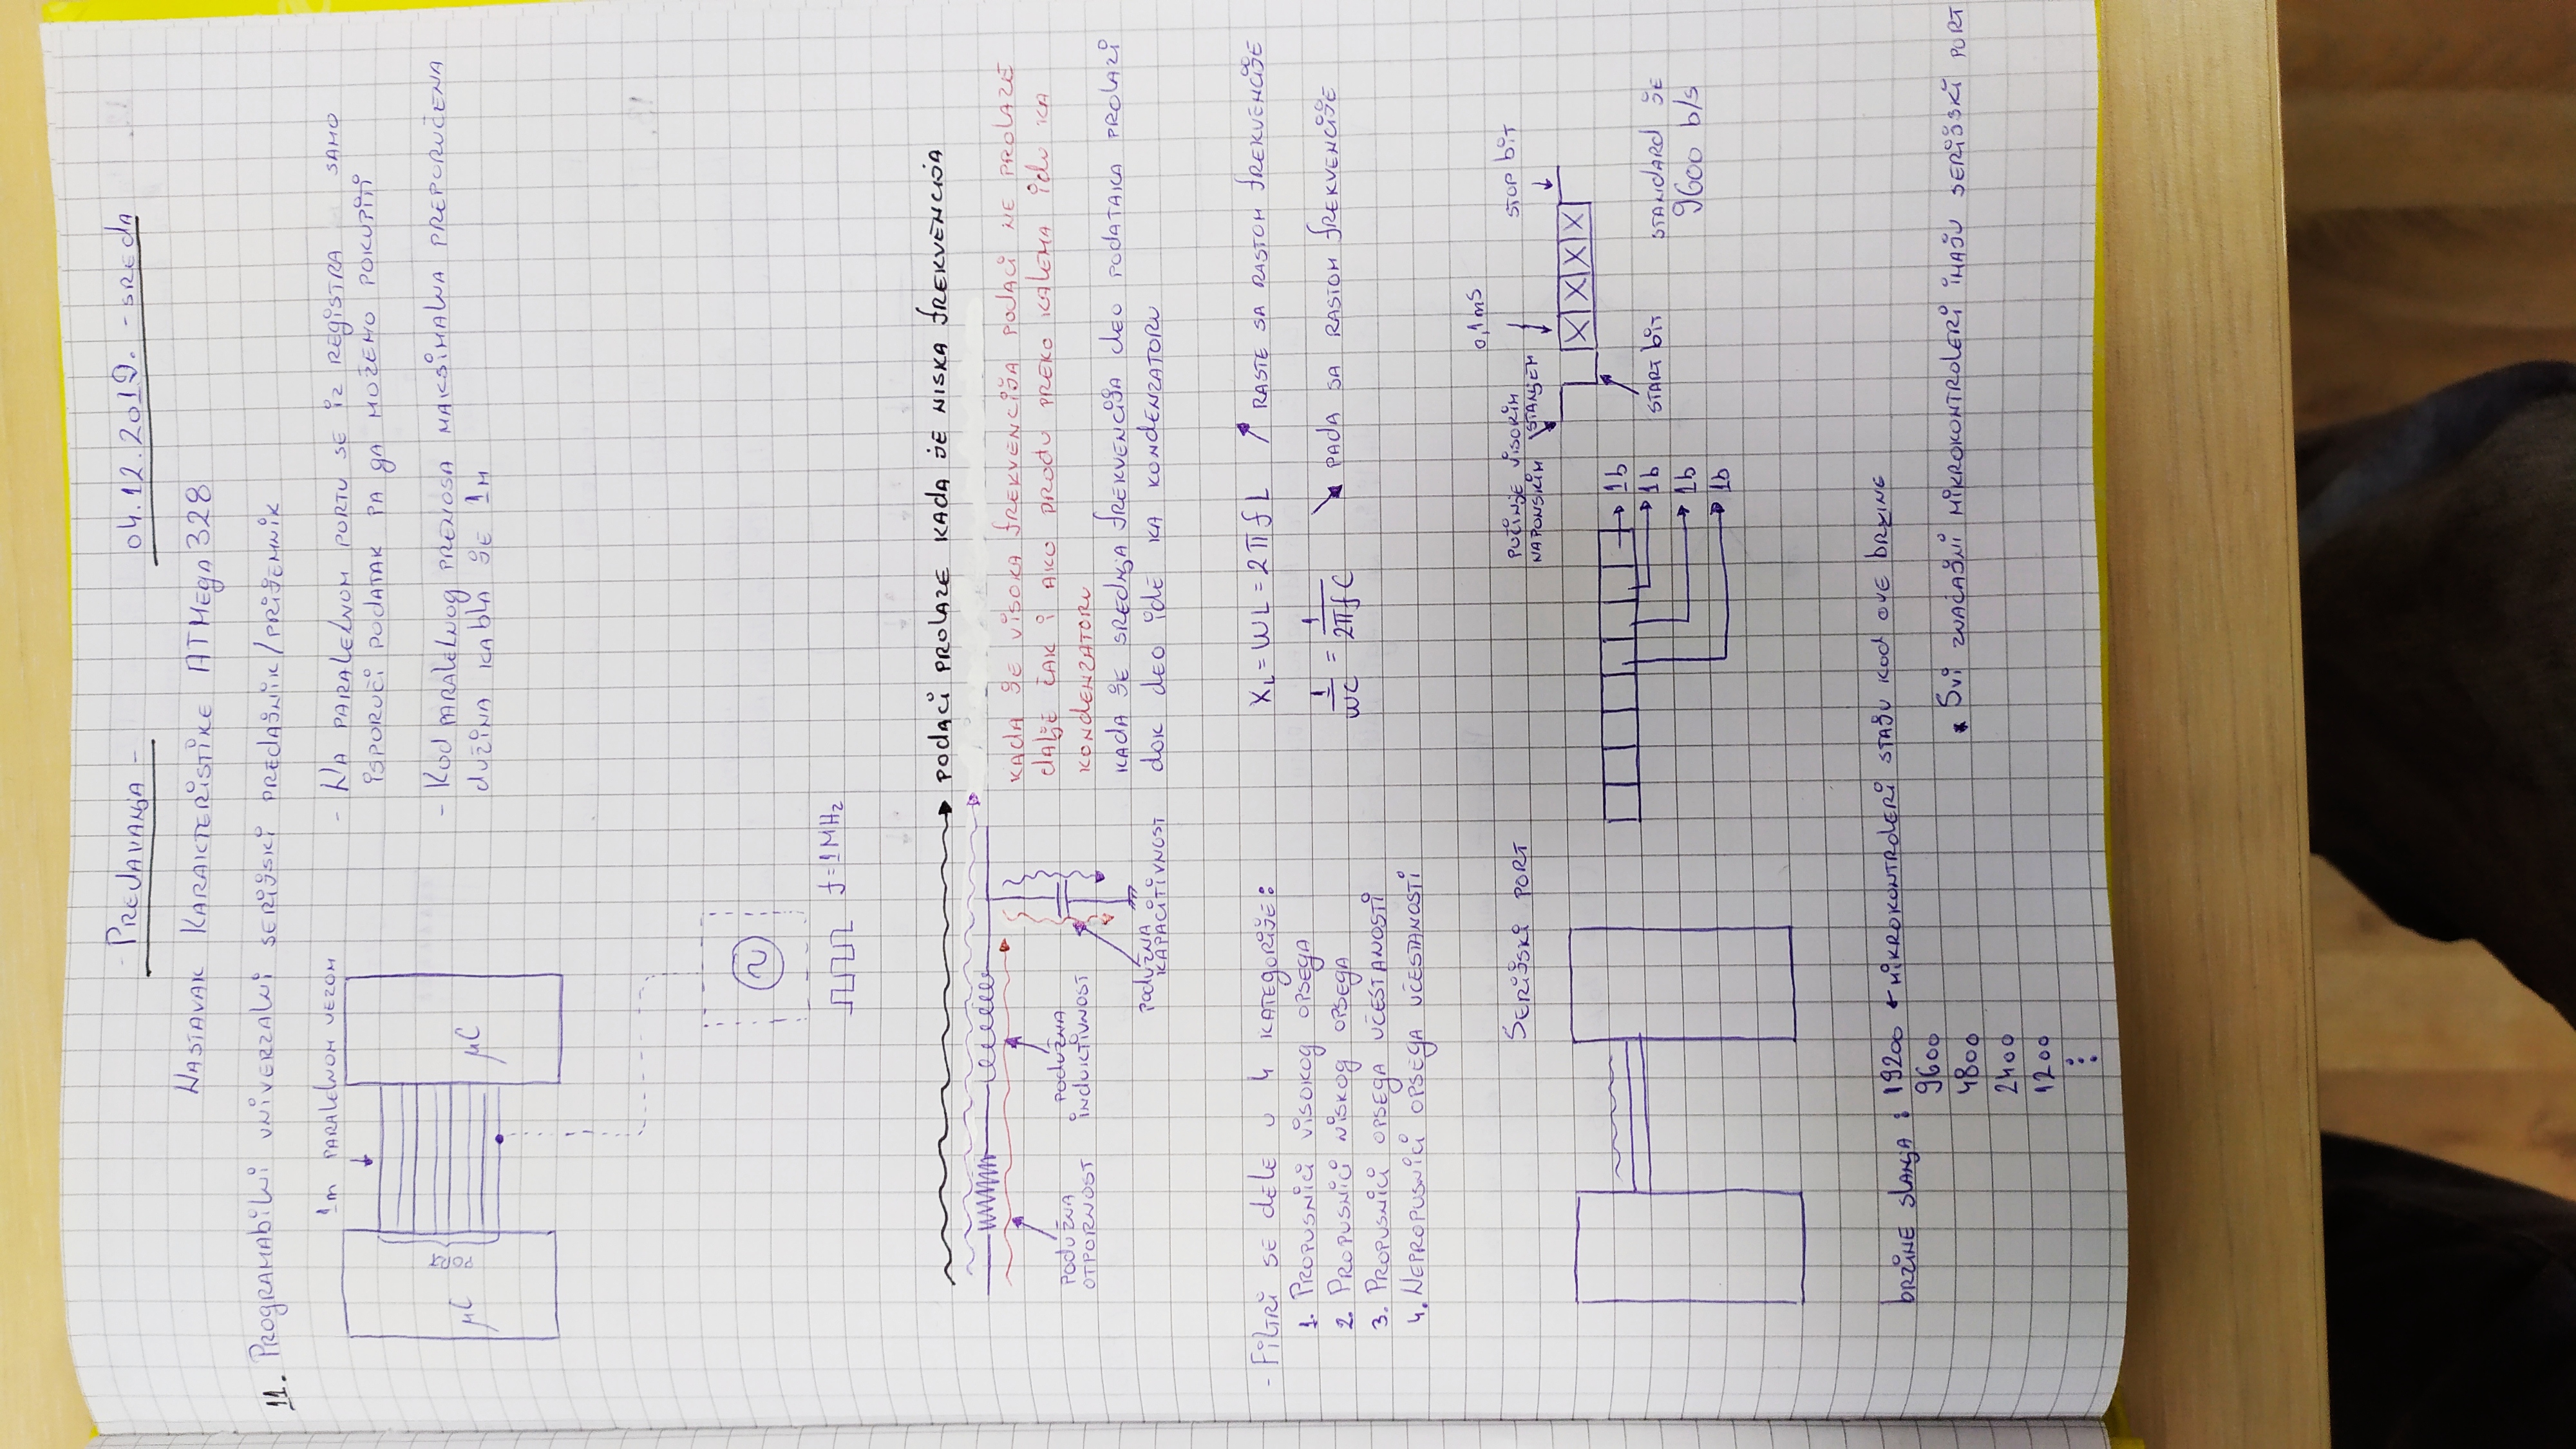 - Predavanja -
04.12.2019. - sreda
Nastavak karakteristike ATMega 328
11. Programabilni univerzalni serijski predajnik/prijemnik
1m paralelnom vezom
μC
PORT
μC
- Na paralelnom portu se iz registra samo
isporuči podatak pa ga možemo pokupiti
- Kod paralelnog prenosa maksimalna preporučena
dužina kabla je 1m
f=1MHz
podaci prolaze kada je niska frekvencija
kada je visoka frekvencija podaci ne prolaze
dalje čak i ako prođu preko kalema idu ka
kondenzatoru
kada je srednja frekvencija deo podataka prolazi
dok deo ide ka kondenzatoru
podužna
otpornost
podužna
induktivnost
podužna
kapacitivnost
- Filtri se dele u 4 kategorije:
1. Propusnici visokog opsega
2. Propusnici niskog opsega
3. Propusnici opsega učestanosti
4. Nepropusnici opsega učestanosti
XL = WL = 2πfL ↗ raste sa rastom frekvencije
1/WC = 1/2πfC ↘ pada sa rastom frekvencije
Serijski port
počinje visokim
naponskim stanjem
0,1ms
stop bit
X X X X
start bit
1b
1b
1b
1b
standard je
9600 b/s
brzine slanja: 19200 ← mikrokontroleri staju kod ove brzine
9600
4800
2400
1200
⋮
* Svi značajni mikrokontroleri imaju serijski port